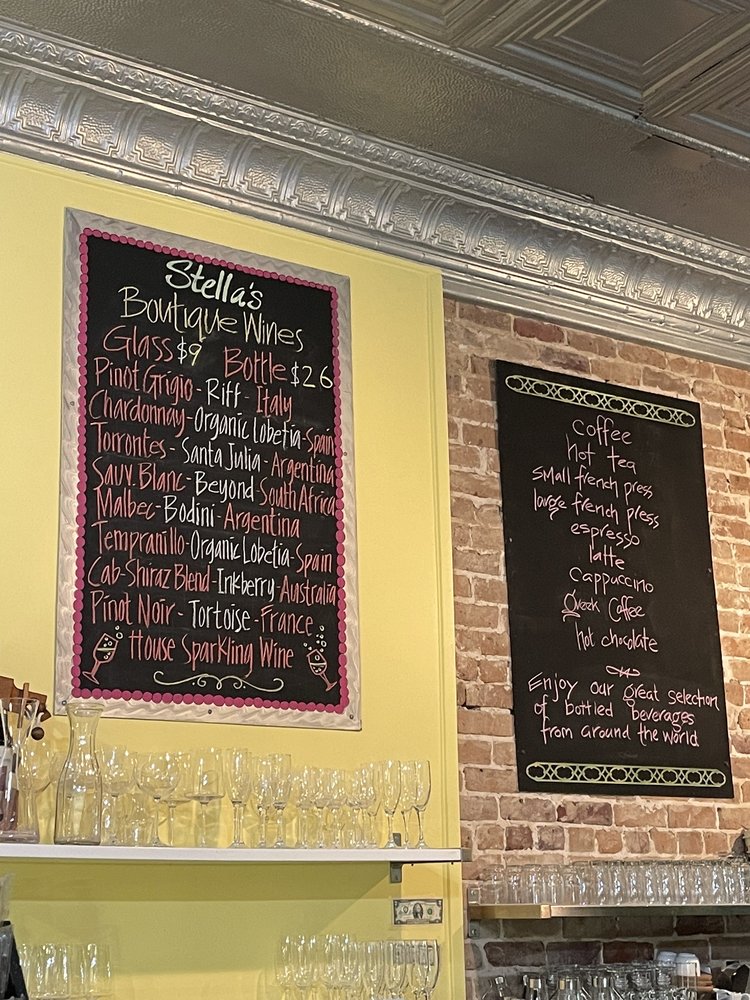 Stella's
Boutique Wines
Glass $9 Bottle $26
Pinot Grigio - Riff - Italy
Chardonnay - Organic Lobetia - Spain
Torrontes - Santa Julia - Argentina
Sauv. Blanc - Beyond South Africa
Malbec - Bodini - Argentina
Tempranillo - Organic Lobetia - Spain
Cab-Shiraz Blend - Inkberry - Australia
Pinot Noir - Tortoise - France
House Sparkling Wine
coffee
hot tea
small french press
large french press
espresso
latte
cappuccino
Greek Coffee
hot chocolate
Enjoy our great selection
of bottled beverages
from around the world